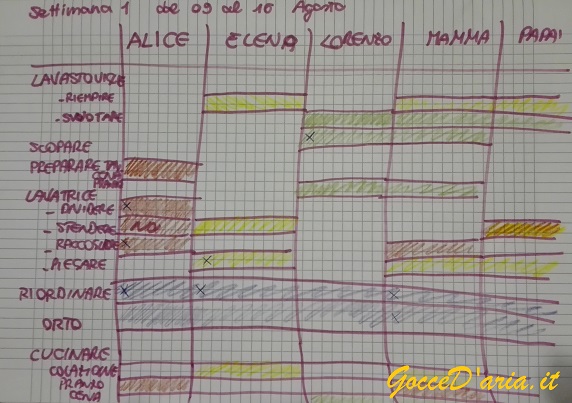 Settimana 1 dal 09 al 16 Agosto
ALICE ELENA LORENZO MAMMA PAPA'
LAVASTOVIGLIE
- RIEMPIRE
- SVUOTARE
SCOPARE
PREPARARE
CENA
PRANZO
LAVATRICE
- DIVIDERE
- STENDERE NO
- RACCOGLIERE
- PIEGARE
RIORDINARE
ORTO
CUCINARE
COLAZIONE
PRANZO
CENA
GocceD'aria.it